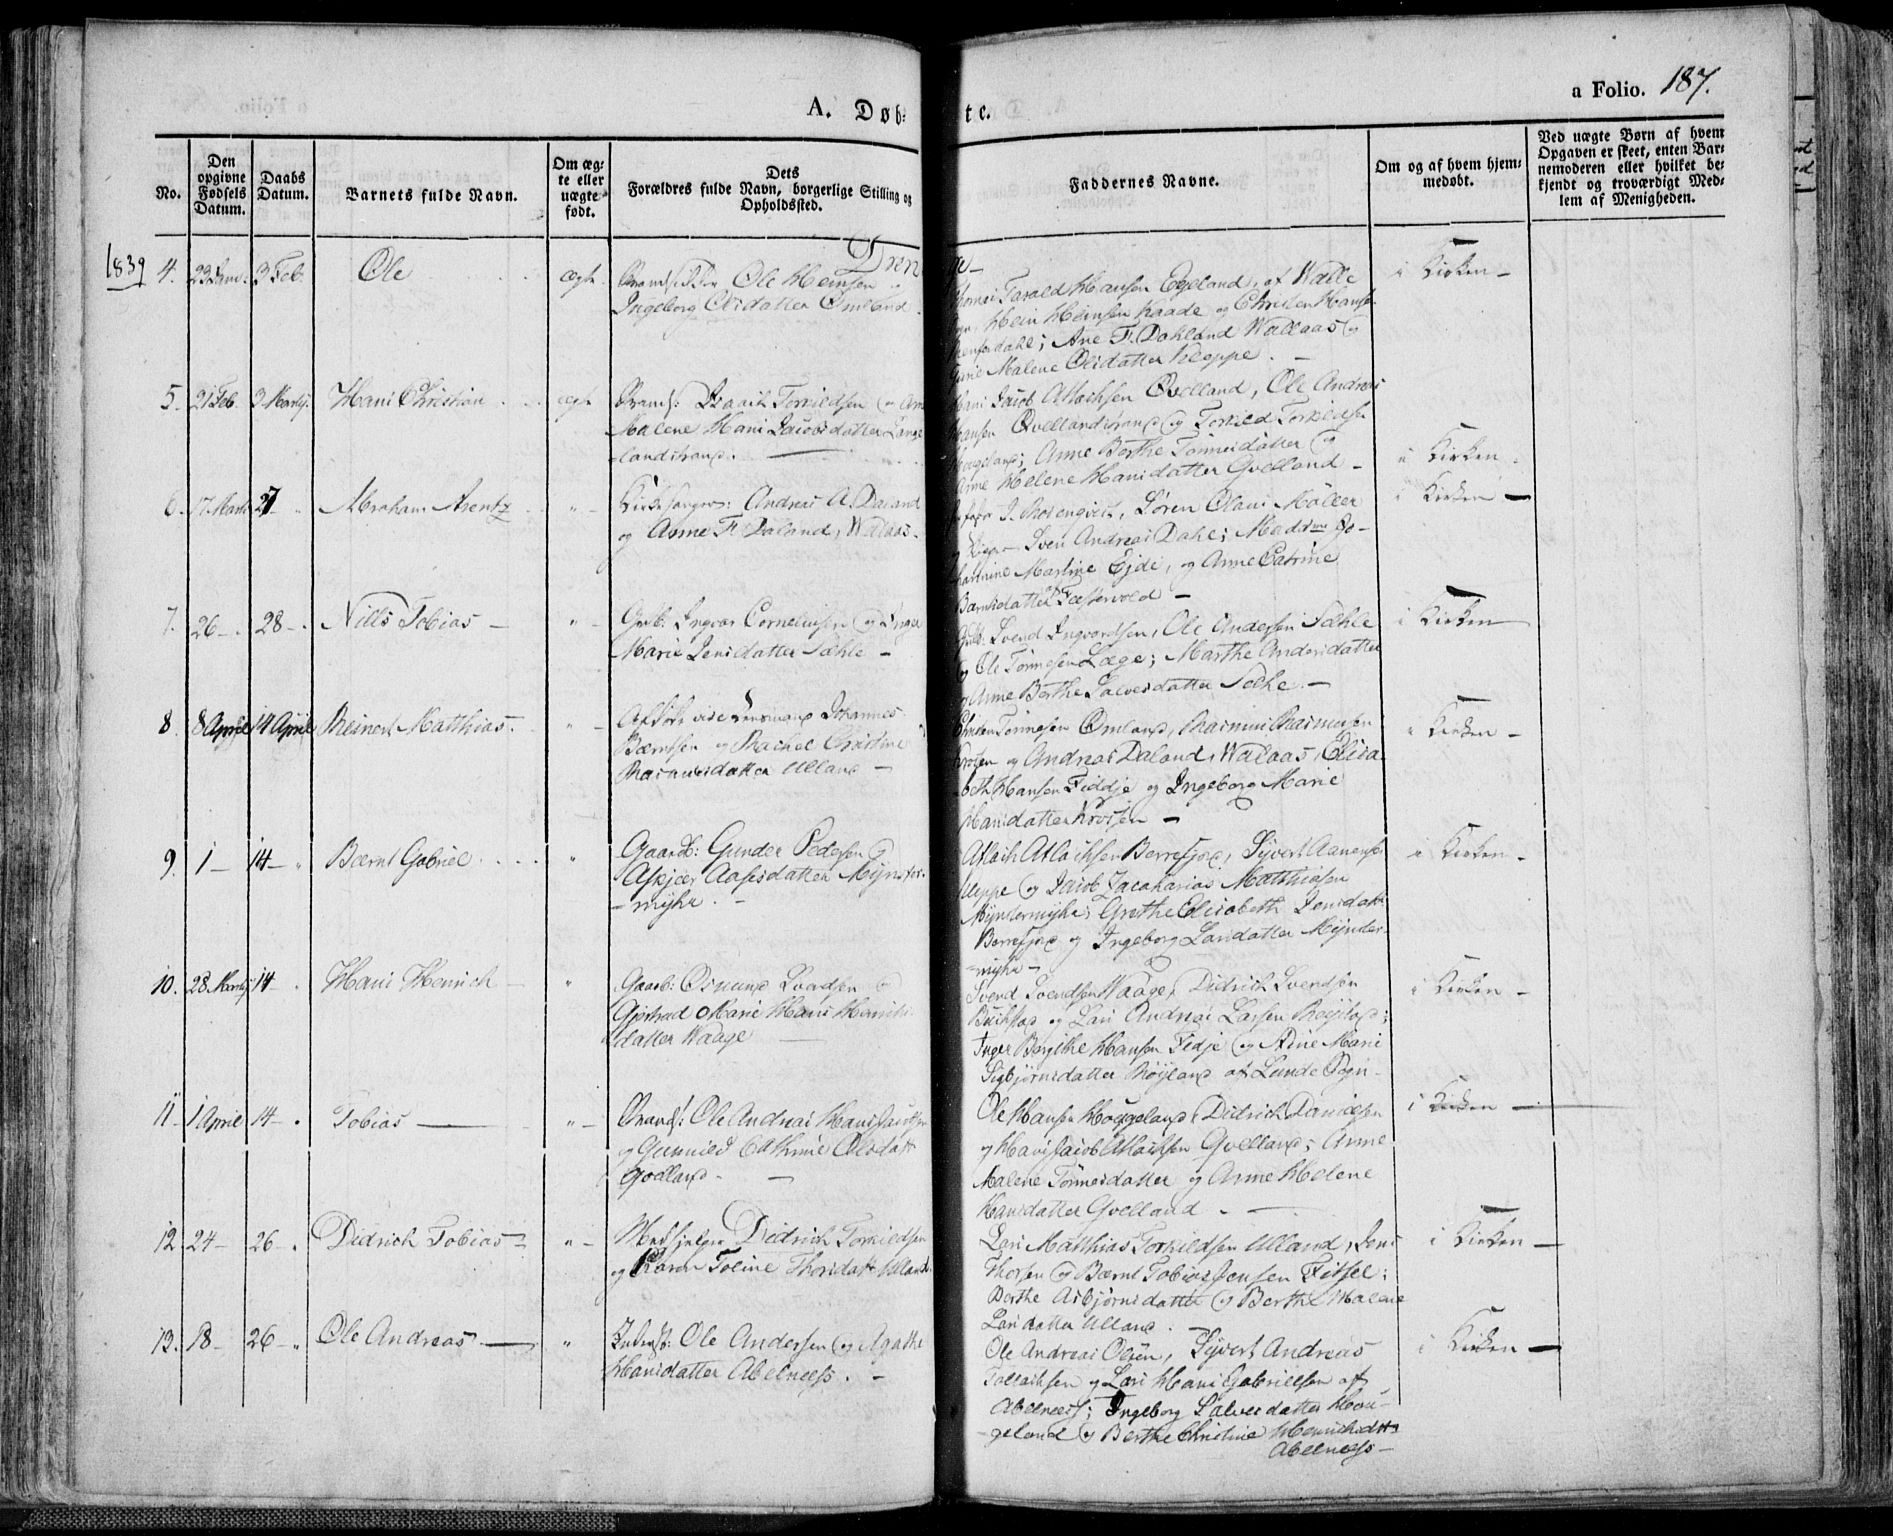 a Folio. 187.
A. Døb-te.
No.
Den opgivne Fødsels Datum.
Daabs Datum.
Barnets fulde Navn.
Om æg-te eller uægte født.
Dets Forældres fulde Navn, borgerlige Stilling og Opholdssted.
Faddernes Navne.
Om og af hvem hjem-medøbt.
Ved uægte Børn af hvem Opgaven er skeet, enten Bar-nemoderen eller hvilket be-kjendt og troværdigt Med-lem af Menigheden.
1839
Drenge
4. 3 Feb. Ole ægte Ole Heinsen
Ingeborg Olsdatter Omland.
Tarald Hansen Egeland, af Walle
Hein Heinsen Kaade og Christen Hans
Ane F. Dahland Wallaas og
Malene Olsdatter Kleppe.
i Kirken
5. 21 Feb. 3 Martj. Hans Christian ægte Strands: Isaach Torkildsen og Ane
Malene Hans Jacobsdatter Lange
landstrand.
Hans Jacob Atlachsen Qvelland, Ole Andreas
Hansen Qvellandstrand og Torkild Torkildsen
Anne Berthe Tønnesdatter og
Anne Helene Hansdatter Qvelland
i Kirken
6. 17 Marts 27 Abraham Arentz " Kirkesanger: Andreas A. Daland
og Anne F. Daland, Walaas.
Søren Olaus Møller
Sven Andreas Dahl; Madme Jo-
Martine Ejde, og Anne Catrine
Berntsdatter
i Kirken
7. 26 28 Nills Tobias " Grb. Ingvar Corneliusen og Inger
Marie Jensdatter Sæhle
Svend Ingvordsen, Ole Andersen Sæhle
og Ole Tønnesen Læge; Marthe Andersdatter
og Anne Berthe Salvesdatter Selhe.
i Kirken
8. 8 April 14 April Reinert Matthias. " Lensmand Johannes
Berntsen og Rachel Christine
Rasmusdatter Ulland
Tønnesen Omland, Rasmus Rasmusen
og Andreas Daland, Walaas, Elisa-
beth Hansen Fiddje og Ingeborg Marie
Hansdatter
i Kirken
9. 1 14 Bernt Gabriel " Gaardb: Gunder Pedersen og
Askjær Aasesdatter Mynster-
myhr.
Atlach Atlachsen Berrefjord, Syvert Aanensen
Kleppe og Jacob Zacharias Matthiasen
Mynstermyhr; Grethe Elisabeth Jensdatt
Berrefjord og Ingeborg Larsdatter Mynster-
myhr
i Kirken
10. 28 Martj 14 Hans Henrich " Gaarb: Osmund Svendsen og
Marie Hans Henrichs
datter Waage
Svend Svendsen Waage, Didrich Svendsen
og Lars Andreas Larsen Røyland;
Inger Bergithe Hansen Fidje og Aine Marie
Sigbjørnsdatter Røyland af Lunde Sogn
i Kirken
11 1 April 14 Tobias " Strands: Ole Andreas Hans Jacobsen
og Gunnild Cathrine Olsdatt
Qvelland.
Ole Hansen Høggeland, Didrich Danielsen
og Hans Jacob Atlachsen Qvelland; Anne
Malene Tønnesdatter og Anne Helene
Hansdatter Qvelland.
i Kirken
12. 24 26 Didrich Tobias " Medhjelper Didrich Torkildsen
og Karen Toline Thorsdatt Ulland.
Lars Matthias Torkildsen Ulland, Jens
Thorsen og Bernt Tobias Jensen Fitsel;
Berthe Asbjørnsdatter og Berthe Malene
Larsdatter Ulland.
i Kirken
13. 18 26 Ole Andreas " Inderst: Ole Andersen og Agathe
Hansdatter Abelness.
Ole Andreas Olsen, Syvert Andreas
Tallachsen og Lars Hans Gabrielsen af
Abelness; Ingeborg Salvesdatter Hou-
geland og Berthe Christine Henrichsdtt
Abelness
i Kirken